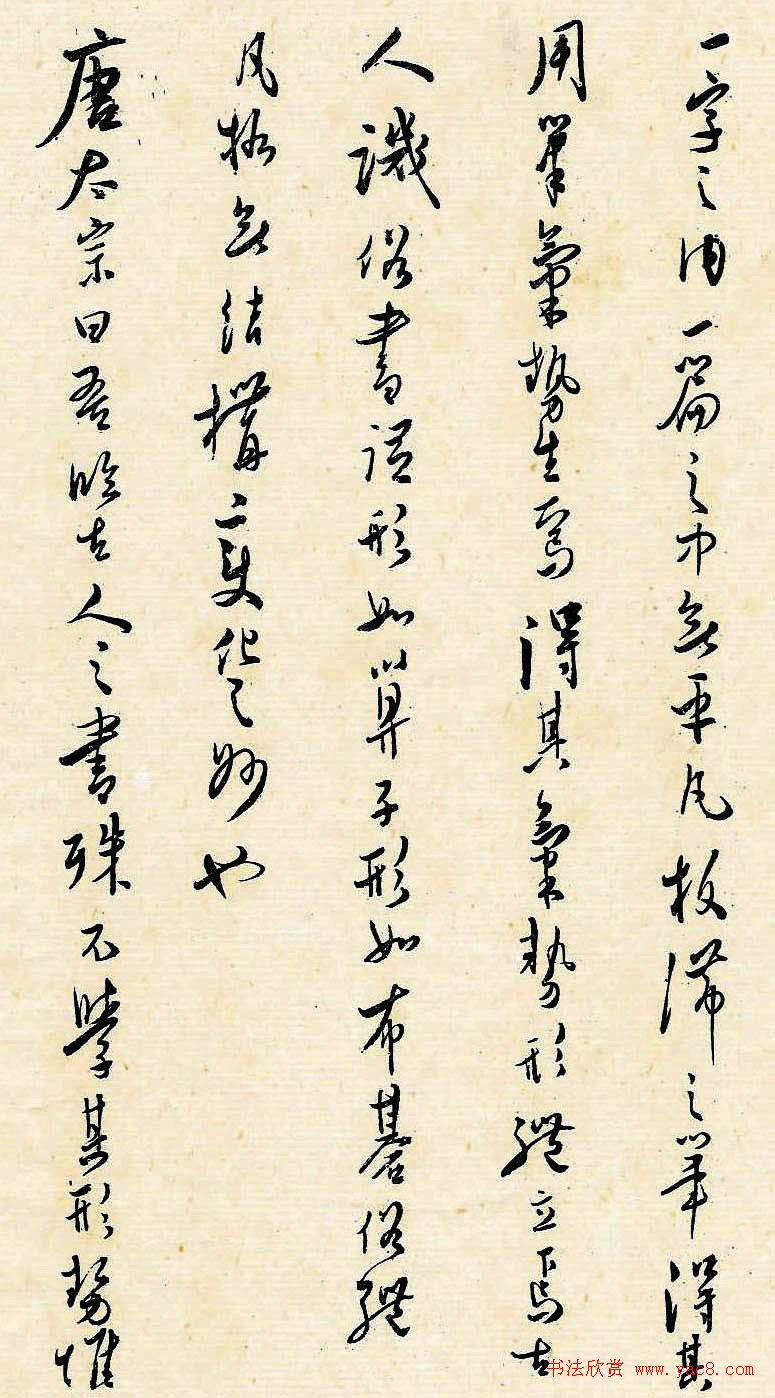 一字之內一篇之中無平凡板滯之筆得其
用筆氣勢生焉得其氣勢形體立焉古
人譏俗書謂形如算子形如布碁俗體
凡格無結構變化之妙也
唐太宗曰吾臨古人之書殊不學其形勢惟
书法欣赏 www.yac8.com